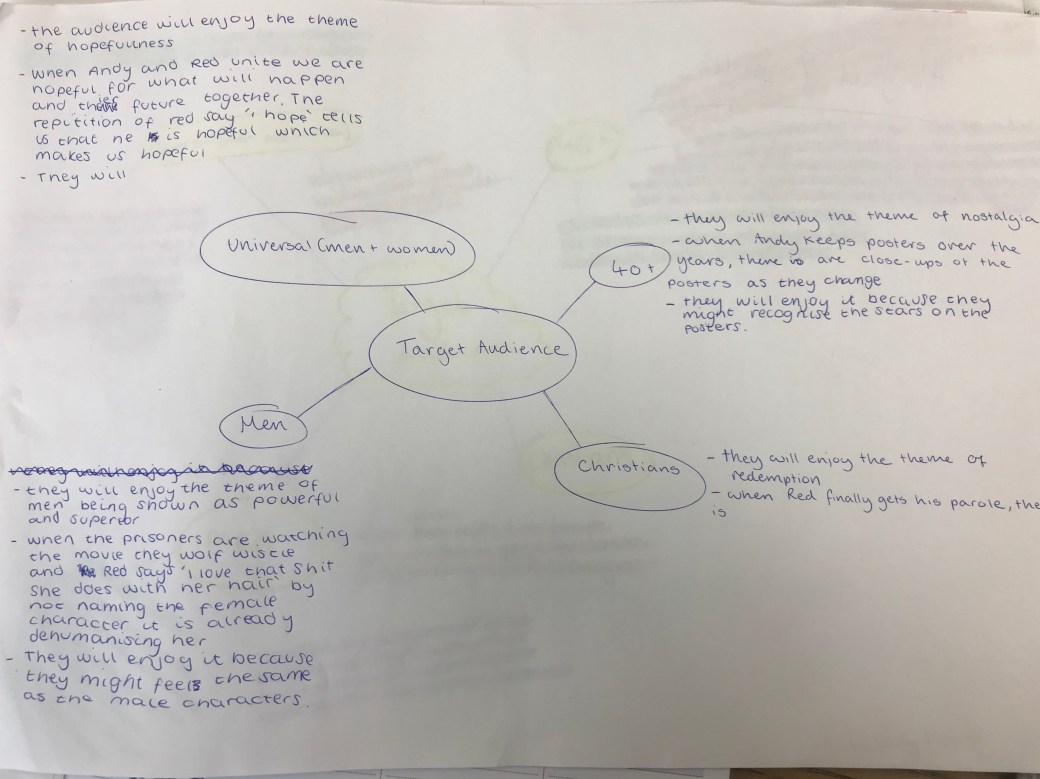 - the audience will enjoy the theme
of hopefullness
- when Andy and Red unite we are
hopeful for what will happen
and their future together. The
repitition of red say 'i hope' tells
us that he is hopeful which
makes us hopeful
- They will
Universal (men + women)
40+
- they will enjoy the theme of nostalgia
- when Andy keeps posters over the
years, there is are close-ups of the
posters as they change
- they will enjoy it because they
might recognise the stars on the
posters.
Target Audience
Men
- they will enjoy the theme of
men being shown as powerful
and superior
- when the prisoners are watching
the movie they wolf wistle
and Red says 'i love that shit
she does with her hair' by
not naming the female
character it is already
dehumanising her
- They will enjoy it because
they might feel the same
as the male characters.
Christians
- they will enjoy the theme of
redemption
- when Red finally gets his parole, the
is